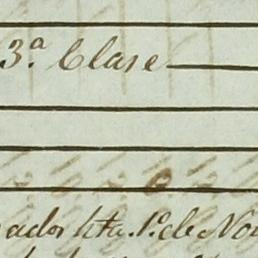 3.ª Clase
ador hta. 1º. de Nov